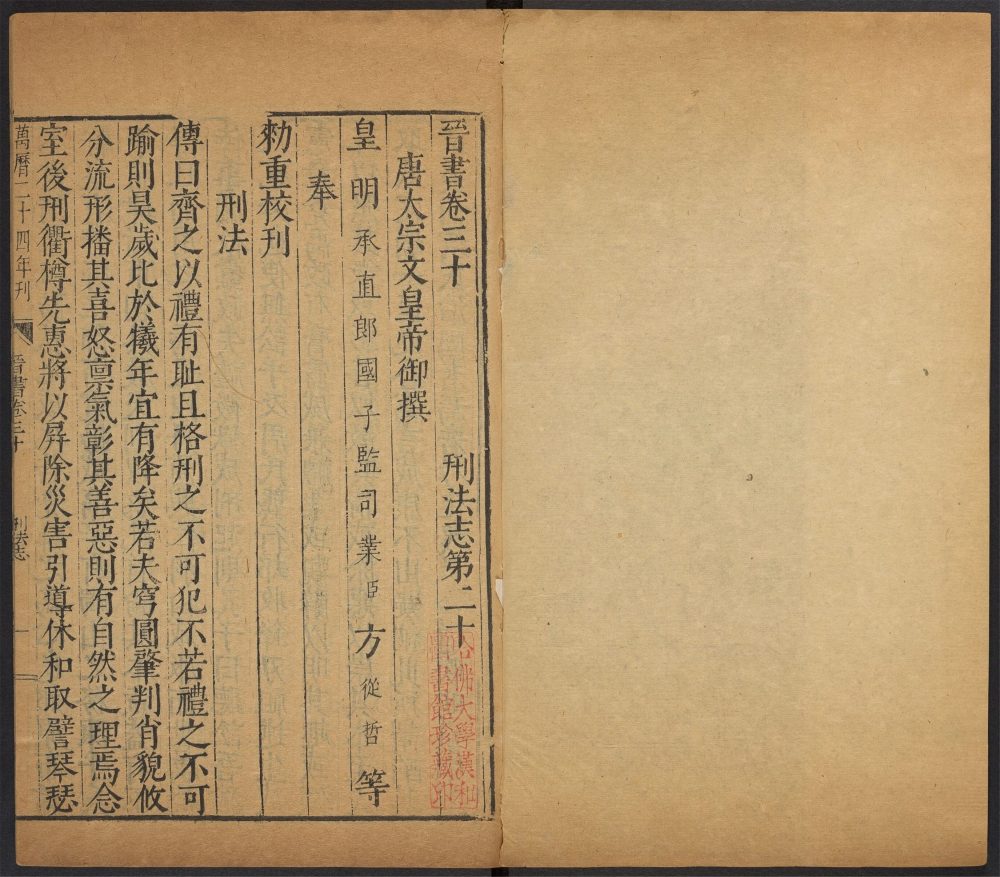 晉書卷三十　　　　刑法志第二十
唐太宗文皇帝御撰
皇明承直郎國子監司業臣方從哲等
奉
勑重校刊
刑法
傳曰齊之以禮有耻且格刑之不可犯不若禮之不可
踰則昊歲比於犧年宜有降矣若夫穹圓肇判宵貌攸
分流形播其喜怒禀氣彰其善惡則有自然之理焉念
室後刑衢樽先惠將以屛除災害引導休和取譬琴瑟
萬曆二十四年刊　晉書卷三十　刑法志　一
哈佛大學漢和
圖書館珍藏印